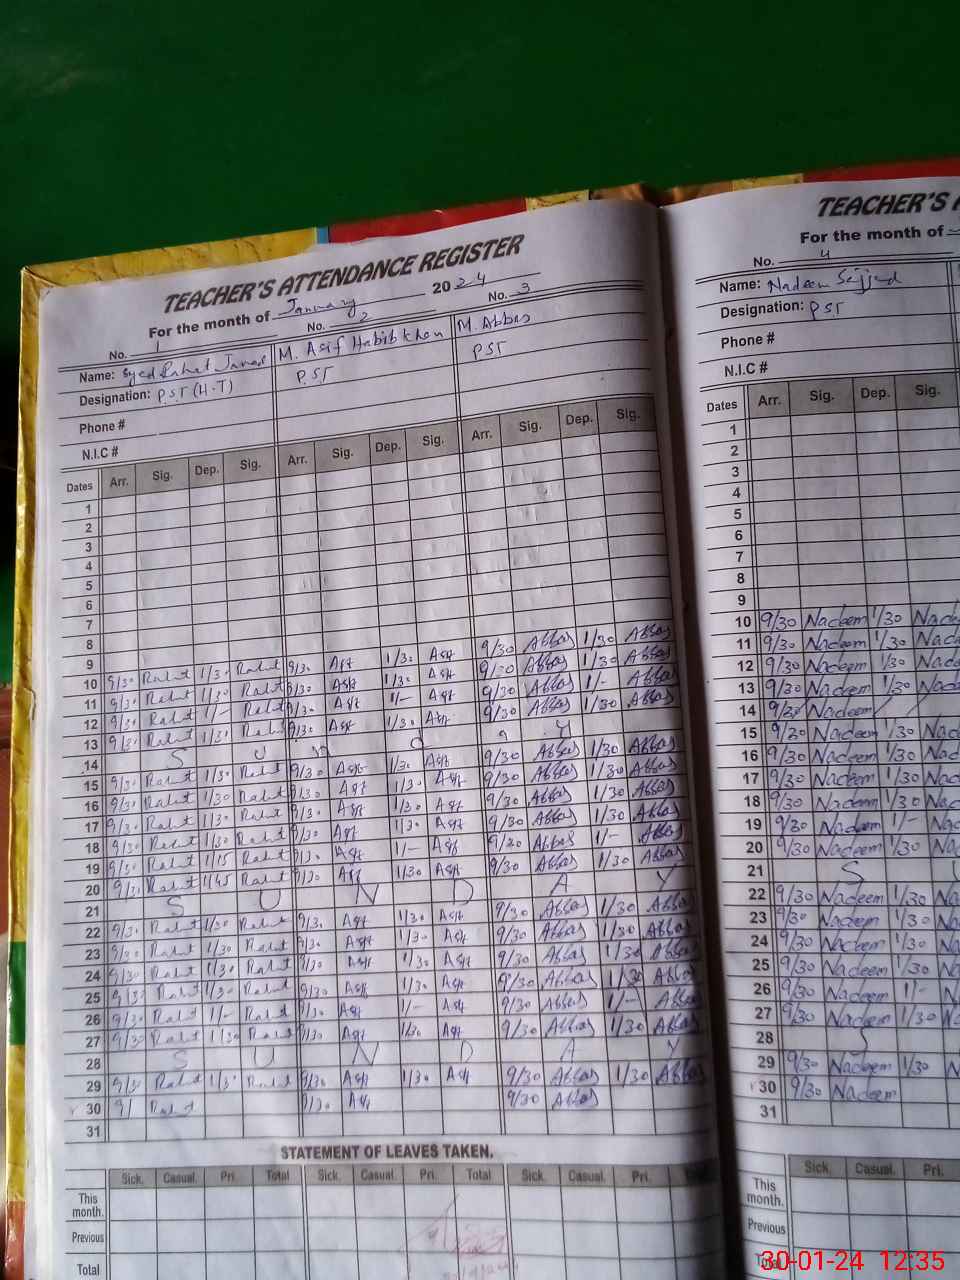 TEACHER'S ATTENDANCE REGISTER
For the month of January 2024
No. 1 No. 2 No. 3
Name: Syed Rahat M. Asif Habib Khan M. Abbas
Designation: PST (H.T) PST PST
Phone #
N.I.C #
Dates Arr. Sig. Dep. Sig. Arr. Sig. Dep. Sig. Arr. Sig. Dep. Sig.
1
2
3
4
5
6
7
8
9
10 9/30 Rahat 1/30 Rahat 9/30 Asif 1/30 Asif 9/30 Abbas 1/30 Abbas
11 9/30 Rahat 1/30 Rahat 9/30 Asif 1/30 Asif 9/30 Abbas 1/30 Abbas
12 9/30 Rahat 1/- Rahat 9/30 Asif 1/- Asif 9/30 Abbas 1/- Abbas
13 9/30 Rahat 1/30 Rahat 9/30 Asif 1/30 Asif 9/30 Abbas 1/30 Abbas
14 S U n d a Y
15 9/30 Rahat 1/30 Rahat 9/30 Asif 1/30 Asif 9/30 Abbas 1/30 Abbas
16 9/30 Rahat 1/30 Rahat 9/30 Asif 1/30 Asif 9/30 Abbas 1/30 Abbas
17 9/30 Rahat 1/30 Rahat 9/30 Asif 1/30 Asif 9/30 Abbas 1/30 Abbas
18 9/30 Rahat 1/30 Rahat 9/30 Asif 1/30 Asif 9/30 Abbas 1/30 Abbas
19 9/30 Rahat 1/15 Rahat 9/30 Asif 1/- Asif 9/30 Abbas 1/- Abbas
20 9/30 Rahat 1/45 Rahat 9/30 Asif 1/30 Asif 9/30 Abbas 1/30 Abbas
21 S U N D A Y
22 9/30 Rahat 1/30 Rahat 9/30 Asif 1/30 Asif 9/30 Abbas 1/30 Abbas
23 9/30 Rahat 1/30 Rahat 9/30 Asif 1/30 Asif 9/30 Abbas 1/30 Abbas
24 9/30 Rahat 1/30 Rahat 9/30 Asif 1/30 Asif 9/30 Abbas 1/30 Abbas
25 9/30 Rahat 1/30 Rahat 9/30 Asif 1/30 Asif 9/30 Abbas 1/30 Abbas
26 9/30 Rahat 1/- Rahat 9/30 Asif 1/- Asif 9/30 Abbas 1/- Abbas
27 9/30 Rahat 1/30 Rahat 9/30 Asif 1/30 Asif 9/30 Abbas 1/30 Abbas
28 S U N D A Y
29 9/30 Rahat 1/30 Rahat 9/30 Asif 1/30 Asif 9/30 Abbas 1/30 Abbas
30 9/ Rahat 9/30 Asif 9/30 Abbas
31
STATEMENT OF LEAVES TAKEN.
Sick. Casual. Pri. Total Sick. Casual. Pri. Total Sick. Casual. Pri.
This month.
Previous
Total
TEACHER'S A
For the month of
No. 4
Name: Nadeem Sajjad
Designation: PST
Phone #
N.I.C #
Dates Arr. Sig. Dep. Sig.
1
2
3
4
5
6
7
8
9
10 9/30 Nadeem 1/30 Nade
11 9/30 Nadeem 1/30 Nad
12 9/30 Nadeem 1/30 Nad
13 9/30 Nadeem 1/30 Nad
14 9/30 Nadeem
15 9/30 Nadeem 1/30 Nad
16 9/30 Nadeem 1/30 Nad
17 9/30 Nadeem 1/30 Nad
18 9/30 Nadeem 1/30 Nac
19 9/30 Nadeem 1/- Na
20 9/30 Nadeem 1/30 Na
21 S
22 9/30 Nadeem 1/30 Na
23 9/30 Nadeem 1/30 Na
24 9/30 Nadeem 1/30 Na
25 9/30 Nadeem 1/30 N
26 9/30 Nadeem 1/- N
27 9/30 Nadeem 1/30 N
28 S
29 9/30 Nadeem 1/30 N
30 9/30 Nadeem
31
Sick. Casual. Pri.
This month.
Previous
Total
30-01-24 12:35